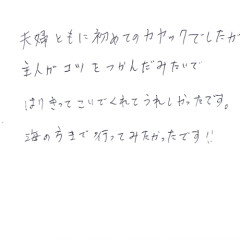 夫婦ともに初めてのカヤックでしたが
主人がコツをつかんだみたいで
はりきってこいでくれてうれしかったです。
海の方まで行ってみたかったです!!